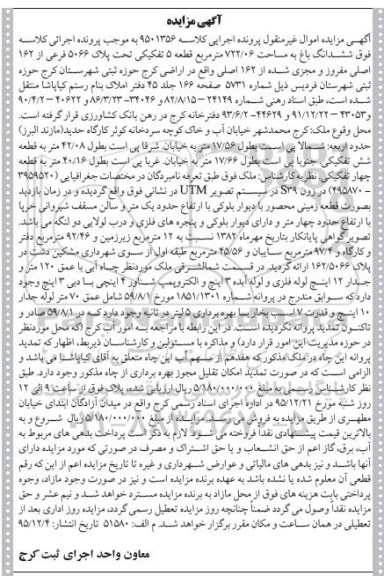 آگهی مزایده
آگهی مزایده اموال غیرمنقول پرونده اجرایی کلاسه ۹۵۰۱۳۵۶ به موجب پرونده اجرائی کلاسه
فوق ششدانگ باغ به مساحت ۷۲۲/۰۶ مترمربع قطعه ۵ تفکیکی تحت پلاک ۵۰۶۶ فرعی از ۱۶۲
اصلی مفروز و مجزی شده از ۱۶۲ اصلی واقع در اراضی کرج حوزه ثبتی شهرستان کرج حوزه
ثبتی شهرستان فردیس ذیل شماره ۵۷۳۱ صفحه ۱۶۶ جلد ۴۵ دفتر املاک بنام رستم کیاپاشا منتقل
شده است، طبق اسناد رهنی شماره ۲۴۱۴۹ – ۸۲/۸/۱۵ و ۳۴۰۴۶–۸۶/۳/۲۳ و ۴۰۶۲۲ – ۹۰/۴/۲
و ۴۳۰۵۳–۹۱/۱۲/۲۲ و ۴۴۶۲۹–۹۳/۶/۲ دفترخانه کرج در رهن بانک کشاورزی قرار گرفته است.
محل وقوع ملک: کرج محمدشهر خیابان آب و خاک کوچه سردخانه کوثر کارگاه حدید(مازند البرز)
حدود اربعه: شمالا پی است بطول ۱۷/۵۶ متر به خیابان. شرقا پی است بطول ۴۲/۰۸ متر به قطعه
شش تفکیکی. جنوبا پی است بطول ۱۷/۶۶ متر به خیابان. غربا پی است بطول ۴۰/۱۶ متر به قطعه
چهار تفکیکی. نظریه کارشناس: ملک فوق طبق تعرفه نامبردگان در مختصات جغرافیایی (۳۹۵۹۵۲۰
– ۴۹۵۸۷۰) در زون S۳۹ در سیستم تصویر UTM در نشانی فوق واقع گردیده و در زمان بازدید
بصورت قطعه زمینی محصور با دیوار بلوکی با ارتفاع حدود یک متر و سالن مسقف شیروانی خرپا
با ارتفاع حدود چهار متر و دارای دیوار بلوکی و پنجره های فلزی و درب لولایی دو لنگه می باشد.
تصویر گواهی پایانکار بتاریخ مهرماه ۱۳۸۲ نسبت به ۱۲ مترمربع زیرزمین و ۹۲/۴۶ مترمربع دفتر
و کارگاه و ۹۷/۴ مترمربع سایبان و ۲۵/۵۶ مترمربع طبقه اول از سوی شهرداری مشکین دشت در
پلاک ۱۶۲/۵۰۶۶ ارائه گردید. در قسمت شمالشرقی ملک موردنظر چاه آبی با عمق ۱۲۰ متر و
جدار ۱۲ اینچ لوله فلزی و لوله آبده ۳ اینچ و الکتروپمپ شناور ۴ اینچی با دبی ۳ اینچ وجود
دارد که سوابق مندرج در پروانه شماره ۱۸۵۱/۱۳۰۱ مورخ ۵۹/۸/۱ شامل عمق ۷۰ متر لوله جدار
۱۰ اینچ و قدرت ۷ اسب بخار با بهره برداری ۵ لیتر در ثانیه وجود دارد که در ۵۹/۸/۱ صادر و
تاکنون تمدید پروانه نگردیده است. در این رابطه با مراجعه به امور آب کرج (که محل موردنظر
در حوزه مدیریت این امور قرار دارد) و مذاکره با مسئولین و کارشناسان ذیربط، اظهار که تمدید
پروانه این چاه در ملک مذکور که هفدهم از سهم آب این چاه متعلق به آقای کیاپاشا می باشد و
الزامی است که در صورت تمدید امکان تقلیل مجوز بهره برداری از چاه مذکور وجود دارد. طبق
نظر کارشناس رسمی به مبلغ ۵/۱۸۰/۰۰۰/۰۰۰ ریال ارزیابی شده، پلاک فوق از ساعت ۹ الی ۱۲
روز شنبه مورخ ۹۵/۱۲/۲۱ در اداره اجرای اسناد رسمی کرج واقع در میدان آزادگان ابتدای خیابان
مطهری از طریق مزایده به فروش می رسد. مزایده از مبلغ ۵/۱۸۰/۰۰۰/۰۰۰ ریال شروع و به
بالاترین قیمت پیشنهادی نقدا فروخته می شود. لازم به ذکر است پرداخت بدهی های مربوط به
آب، برق، گاز اعم از حق انشعاب و یا حق اشتراک و مصرف در صورتی که مورد مزایده دارای
آنها باشد و نیز بدهی های مالیاتی و عوارض شهرداری و غیره تا تاریخ مزایده اعم از این که رقم
قطعی آن معلوم شده یا نشده باشد به عهده برنده مزایده است و نیز در صورت وجود مازاد، وجوه
پرداختی بابت هزینه های فوق از محل مازاد به برنده مزایده مسترد خواهد شد و نیم عشر و حق
مزایده نقدا وصول می گردد ضمناً چنانچه روز مزایده تعطیل رسمی گردد، مزایده روز اداری بعد از
تعطیلی در همان ساعت و مکان مقرر برگزار خواهد شد. م الف: ۵۱۵۸۰ تاریخ انتشار: ۹۵/۱۲/۴
معاون واحد اجرای ثبت کرج